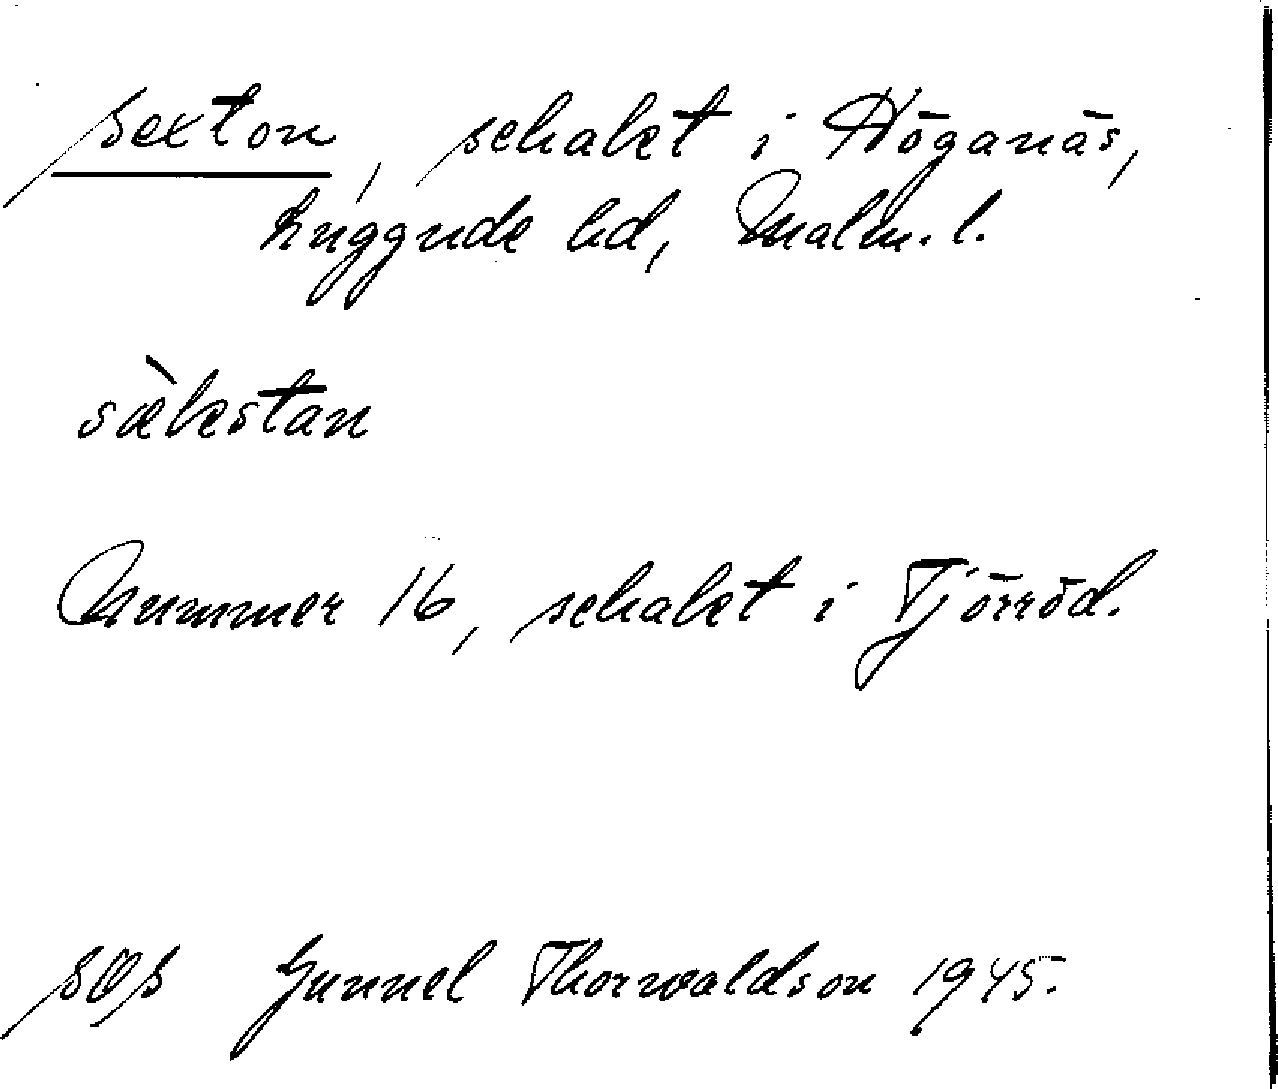 sexton, schakt i Höganäs,
Luggude hd, Malm. l.
sæ̀kstan
Nummer 16, schakt i Tjörröd.
SOS Gunnel Thorwaldson 1945.